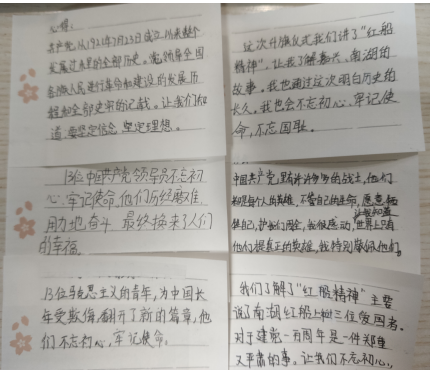 心得：
共产党从1921年7月23日成立以来整个
发展过程的全部历史。党领导全国
各族人民进行革命和建设的发展历
程和全部史实的记载。让我们知
道要坚定信念，坚定理想。
这次升旗仪式我们讲了“红船
精神”，让我了解嘉兴，南湖的
故事。我也通过这次明白历史的
长久。我也会不忘初心，牢记使
命，不忘国耻。
13位中国共产党领导员不忘初
心，牢记使命，他们历经艰难
用力地奋斗 最终换来了人们
的幸福。
中国共产党里有许许多多的战士，他们
都是每个人的英雄，不管自己的生命，愿意牺
牲自己，护我们周全，我很感动，让我知道世界上只有
他们是真正的英雄，我特别崇佩他们。
13位马克思主义的青年，为中国长
年受欺侮，翻开了新的篇章，他
们不忘初心，牢记使命。
我们了解了“红船精神”主要
说了南湖红船上树三位爱国者.
对于建党一百周年是一件郑重
又严肃的事。让我们不忘初心，